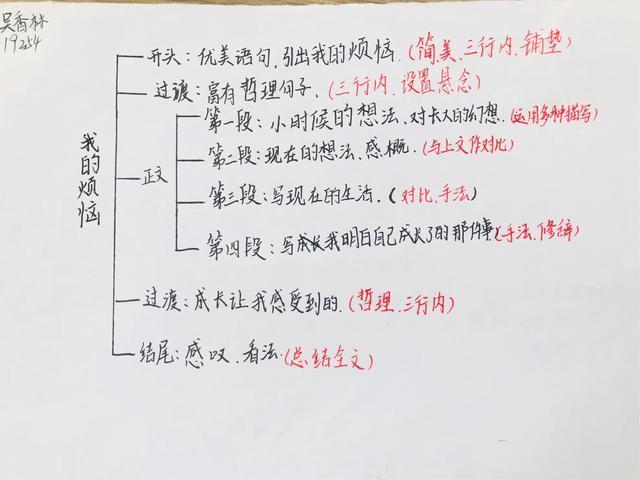 吴香林
19254
开头：优美语句，引出我的烦恼．（简、美、三行内、铺垫）
过渡：富有哲理句子．（三行内、设置悬念）
我的烦恼
正文
第一段：小时候的想法、对长大的幻想．（运用多种描写）
第二段：现在的想法、感概．（与上文作对比）
第三段：写现在的生活．（对比、手法）
第四段：写成长我明白自己成长了的那件事（手法、修辞）
过渡：成长让我感受到的．（哲理、三行内）
结尾：感叹、看法．（总结全文）